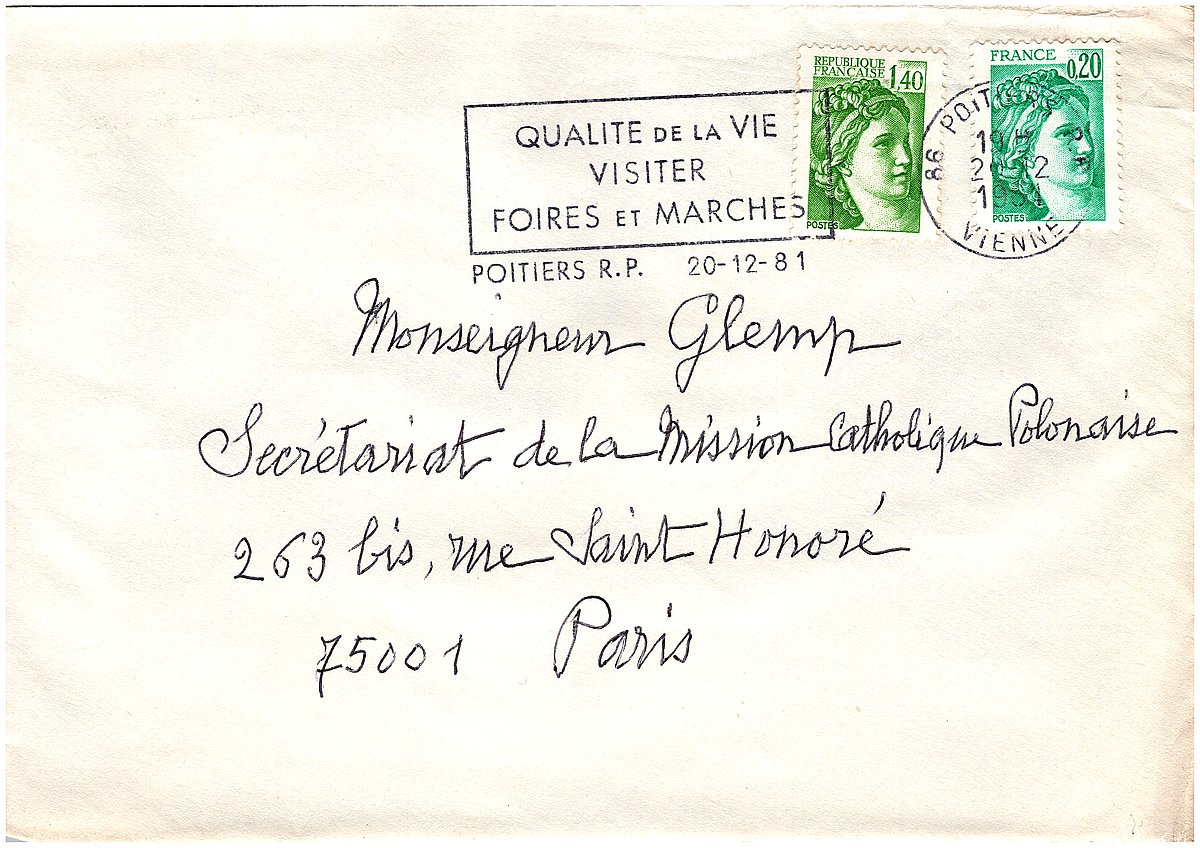 QUALITE DE LA VIE
VISITER
FOIRES ET MARCHES
POITIERS R.P. 20-12-81
REPUBLIQUE
FRANÇAISE
1,40
POSTES
FRANCE
0,20
POSTES
86 POITIERS
20-12
1981
VIENNE
Monseigneur Glemp
Secrétariat de la Mission Catholique Polonaise
263 bis, rue Saint Honoré
75001 Paris